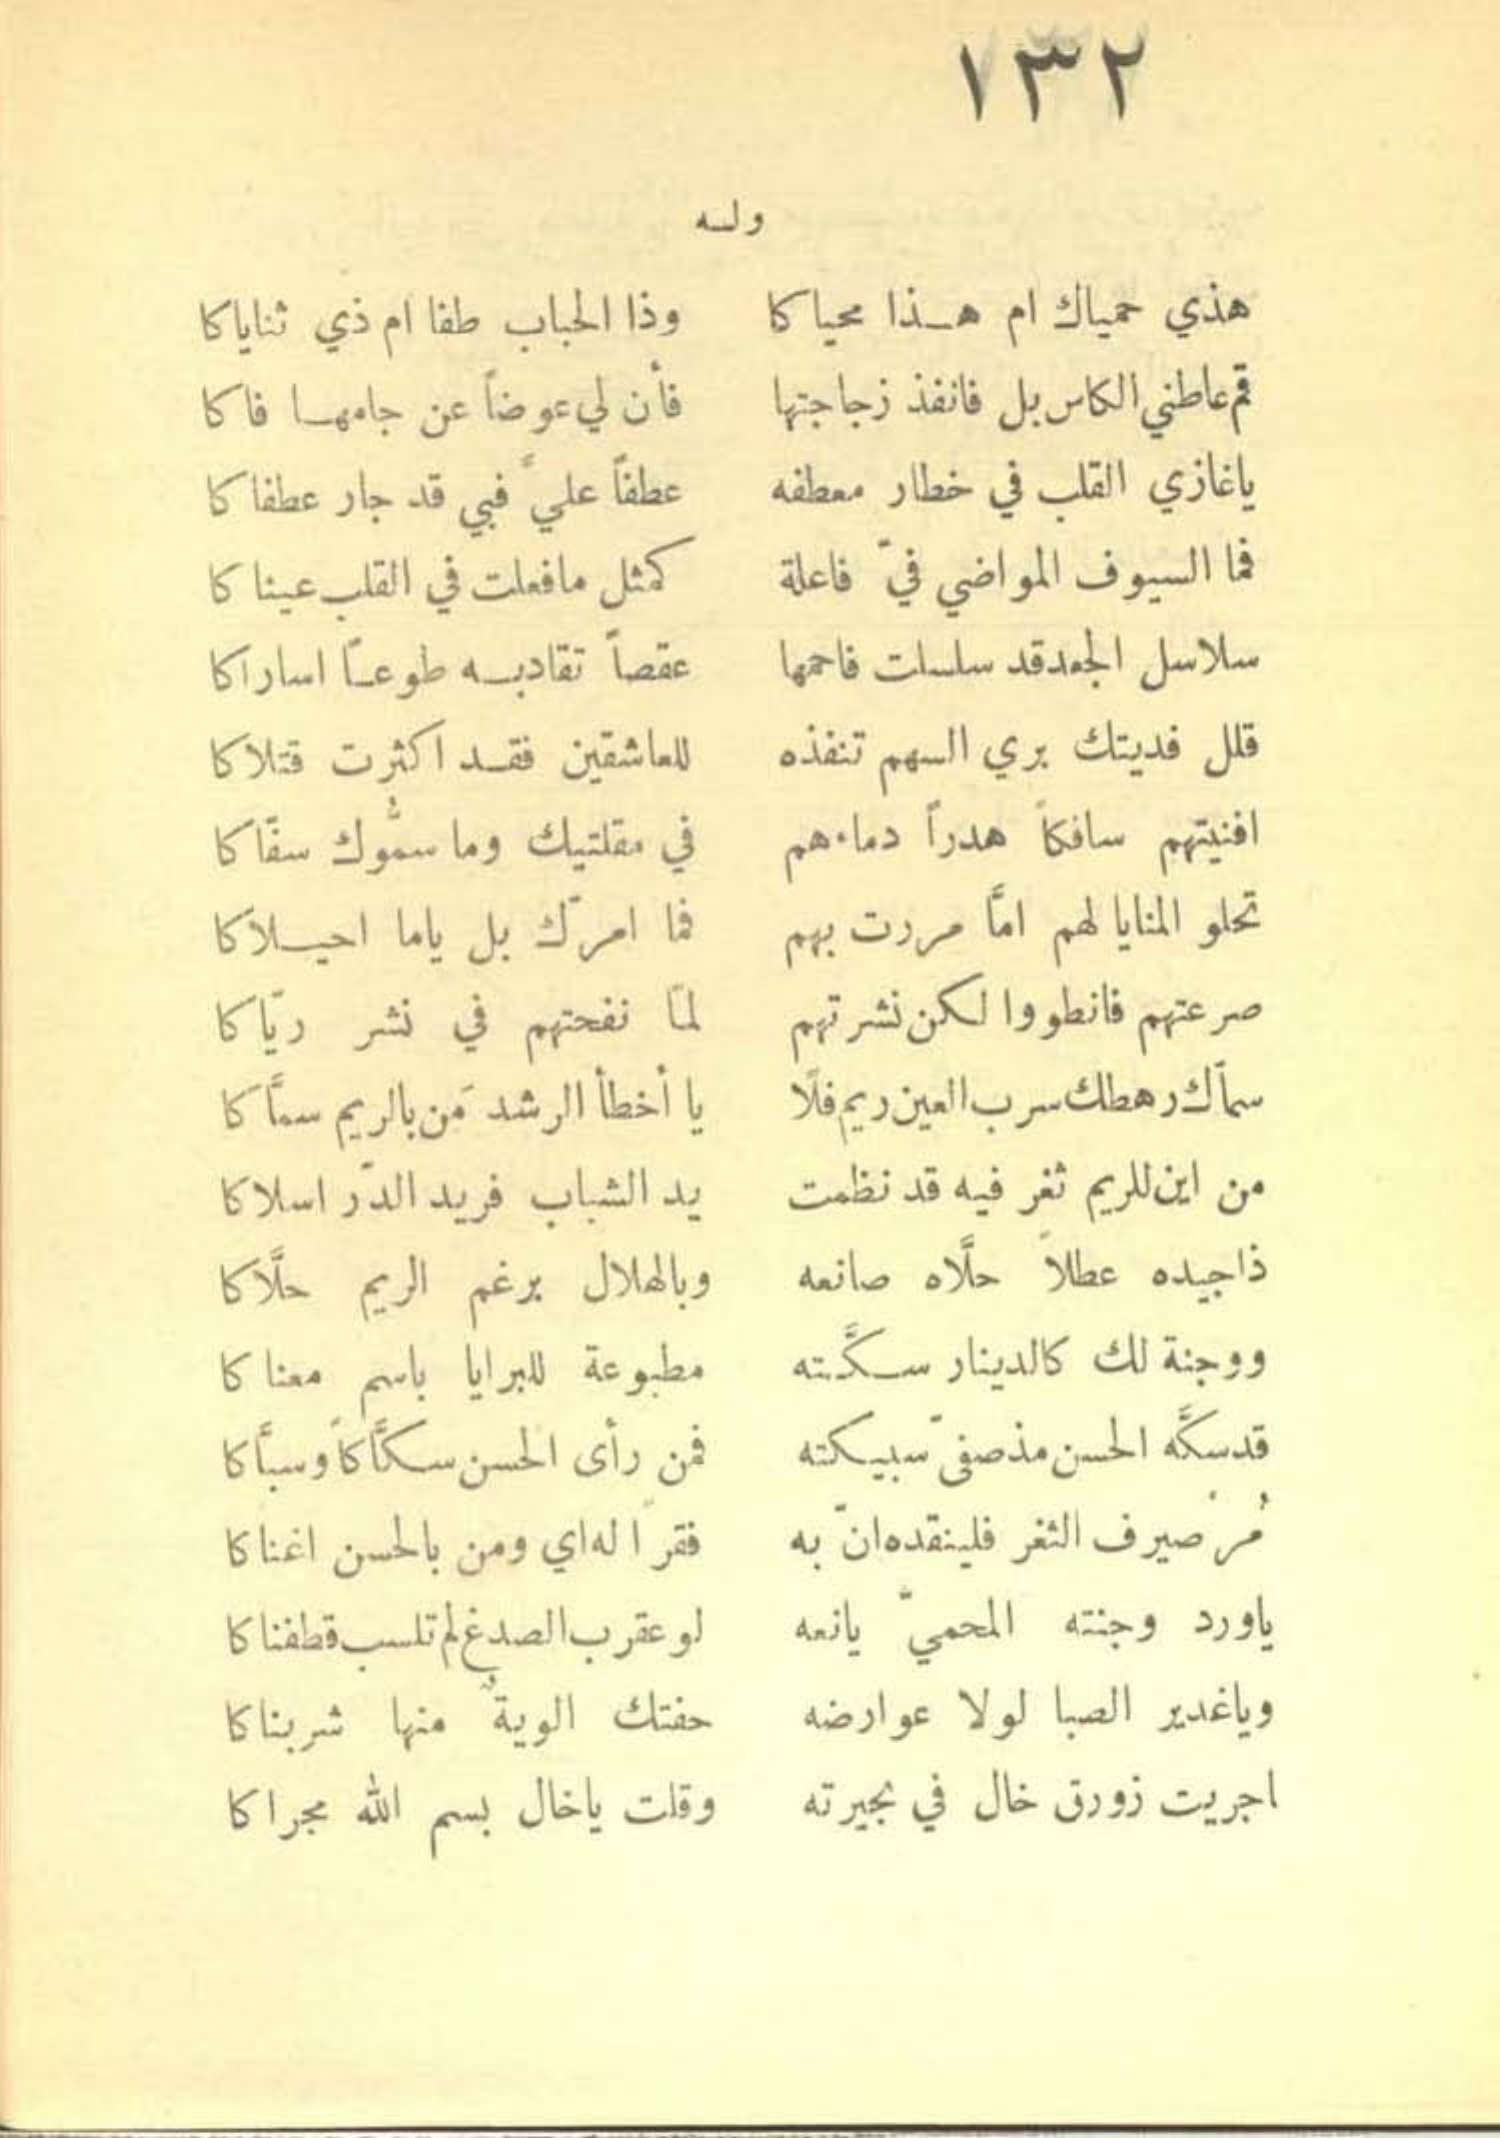 ١٣٢
وله
هذي حمياك ام هذا محياكا وذا الحباب طفا ام ذي ثناياكا
قم عاطني الكاس بل فانفذ زجاجتها فأن لي عوضاً عن جامها فاكا
ياغازي القلب في خطار معطفه عطفاً عليّ فبي قد جار عطفاكا
فما السيوف المواضي فيّ فاعلة كمثل مافعلت في القلب عيناكا
سلاسل الجعد قد سلسلت فاحمها عقصاً تقاد به طوعاً اساراكا
قلل فديتك بري السهم تنفذه للعاشقين فقد اكثرت قتلاكا
افنيتهم سافكاً هدراً دماءهم في مقلتيك وما سمُّوك سفّاكا
تحلو المنايا لهم امَّا مررت بهم فما امرّك بل ياما احيلاكا
صرعتهم فانطووا لكن نشرتهم لمّا نفحتهم في نشر ريّاكا
سمآك رهطك سرب العين ريم فلًا يا أخطأ الرشد مَن بالريم سمَّاكا
من اين للريم ثغر فيه قد نظمت يد الشباب فريد الدّر اسلاكا
ذاجيده عطلاً حلَّاه صانعه وبالهلال برغم الريم حلَّاكا
ووجنة لك كالدينار سكَّته مطبوعة للبرايا باسم معناكا
قد سكَّه الحسن مذ صفىّ سبيكته فمن رأى الحسن سكَّاكاً وسبَّاكا
مُر صيرف الثغر فلينقده انّ به فقراً اله اي ومن بالحسن اغناكا
ياورد وجنته المحميّ يانعه لو عقرب الصدغ لم تلسب قطفناكا
وياغدير الصبا لولا عوارضه حفتك الويةٌ منها شربناكا
اجريت زورق خال في بحيرته وقلت ياخال بسم الله مجراكا